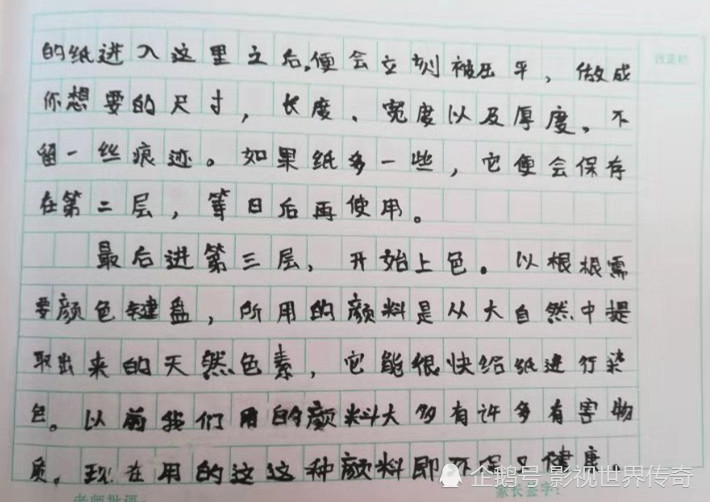 的纸进入这里之后,便会立刻被压平，做成
你想要的尺寸，长度、宽度以及厚度。不
留一丝痕迹。如果纸多一些，它便会保存
在第二层，等日后再使用。
最后进第三层，开始上色。以根根需
要颜色键盘，所用的颜料是从大自然中提
取出来的天然色素，它能很快给纸进行染
色。以前我们用的颜料大多有许多有害物
质。现在用的这这种颜料即环保又健康
企鹅号 影视世界传奇
老师批评：
家长签字：